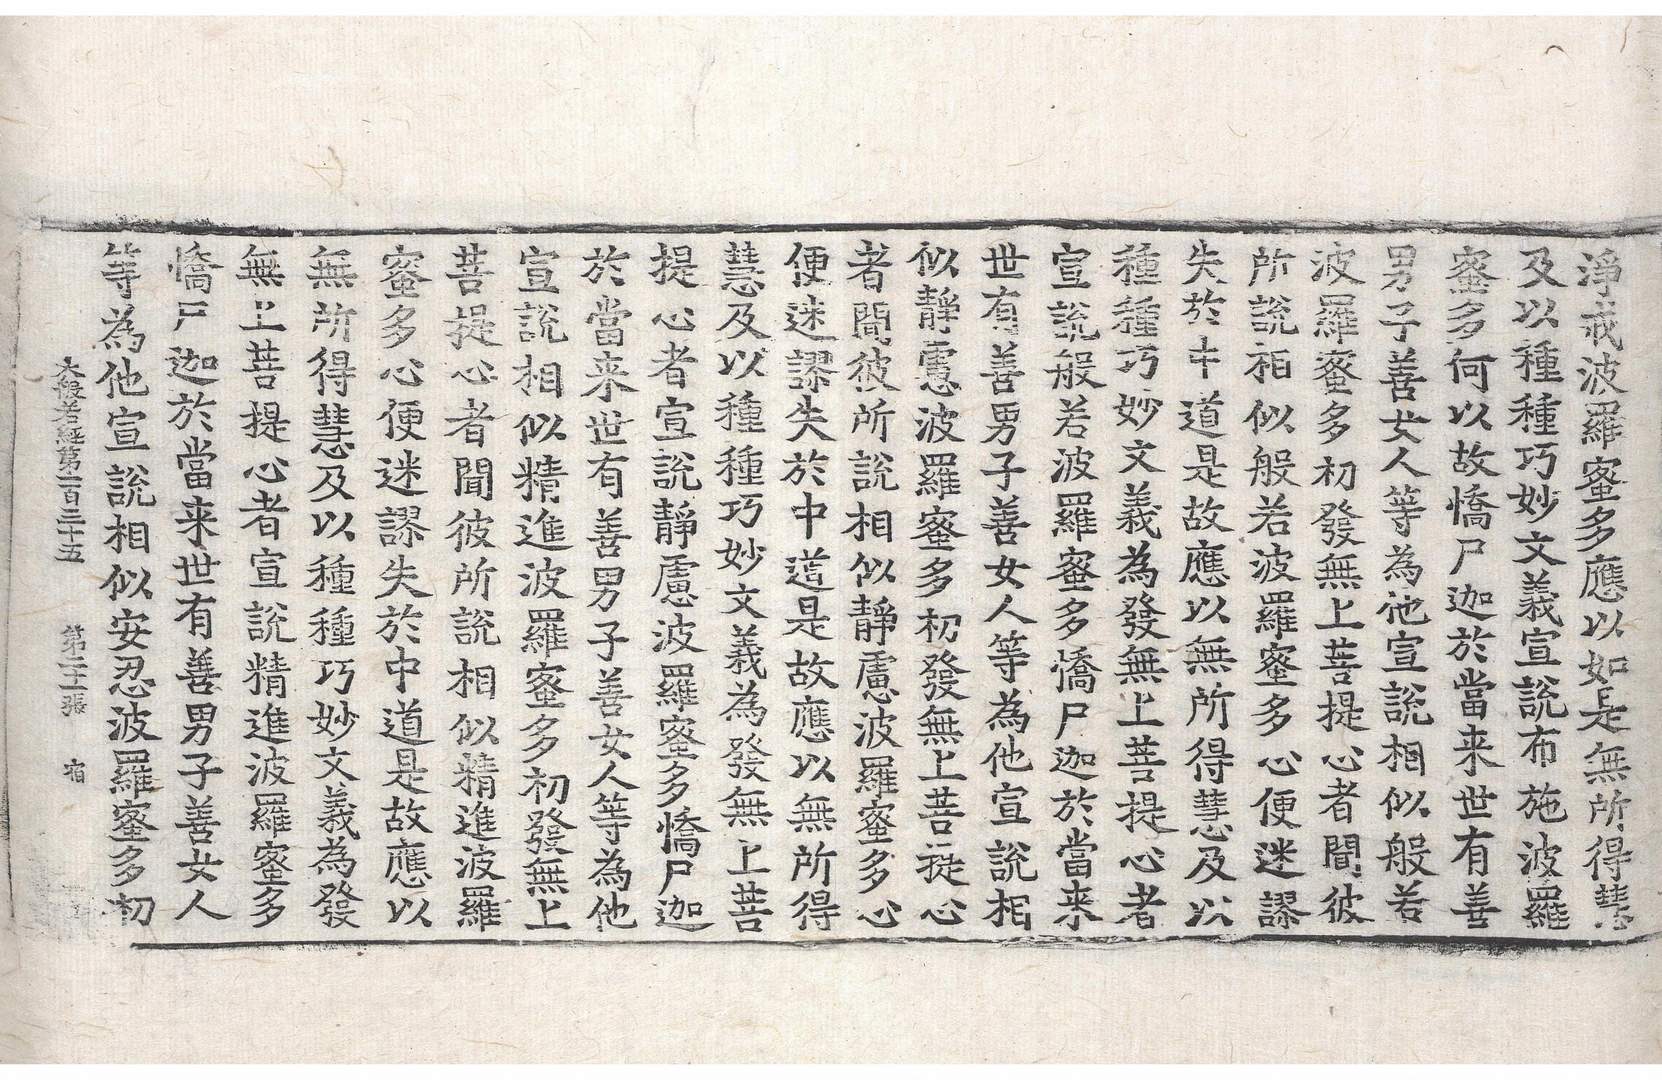 淨戒波羅蜜多應以如是無所得慧
及以種種巧妙文義宣說布施波羅
蜜多何以故憍尸迦於當来世有善
男子善女人等為他宣說相似般若
波羅蜜多初發無上菩提心者聞彼
所說相似般若波羅蜜多心便迷謬
失於中道是故應以無所得慧及以
種種巧妙文義為發無上菩提心者
宣說般若波羅蜜多憍尸迦於當来
世有善男子善女人等為他宣說相
似靜慮波羅蜜多初發無上菩提心
者聞彼所說相似靜慮波羅蜜多心
便迷謬失於中道是故應以無所得
慧及以種種巧妙文義為發無上菩
提心者宣說靜慮波羅蜜多憍尸迦
於當来世有善男子善女人等為他
宣說相似精進波羅蜜多初發無上
菩提心者聞彼所說相似精進波羅
蜜多心便迷謬失於中道是故應以
無所得慧及以種種巧妙文義為發
無上菩提心者宣說精進波羅蜜多
憍尸迦於當来世有善男子善女人
等為他宣說相似安忍波羅蜜多初
大般若經第一百三十五 第二十一張 宿